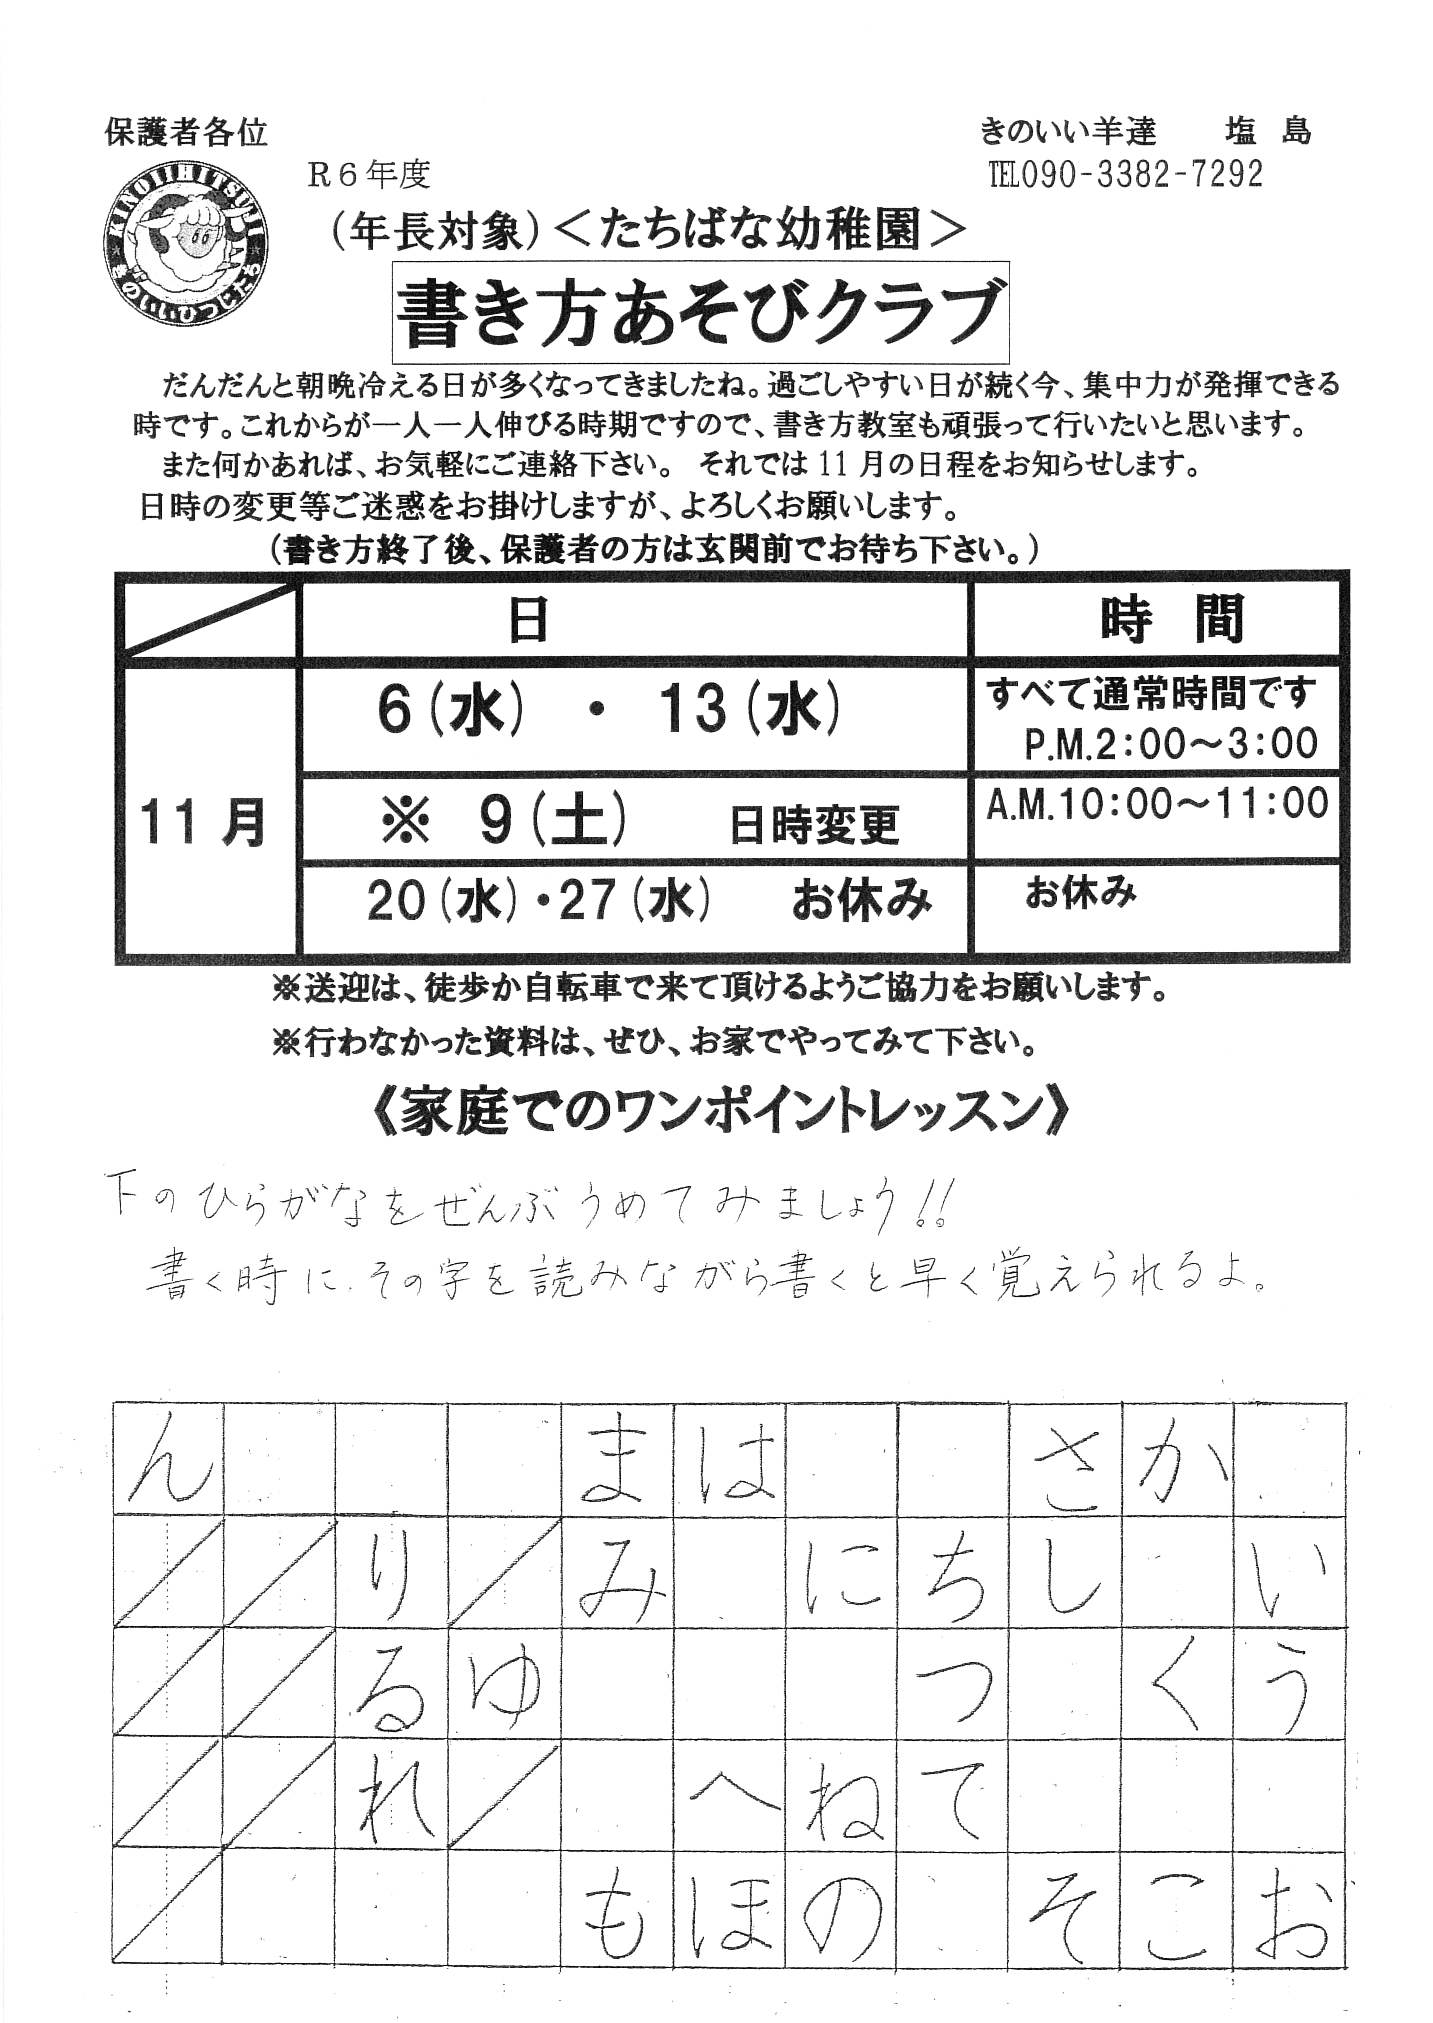 保護者各位
きのいい羊達　塩 島
R6年度
℡090-3382-7292
KINOIIHITSUJI
きのいいひつじたち
(年長対象)＜たちばな幼稚園＞
書き方あそびクラブ
だんだんと朝晩冷える日が多くなってきましたね。過ごしやすい日が続く今、集中力が発揮できる
時です。これからが一人一人伸びる時期ですので、書き方教室も頑張って行いたいと思います。
また何かあれば、お気軽にご連絡下さい。 それでは 11 月の日程をお知らせします。
日時の変更等ご迷惑をお掛けしますが、よろしくお願いします。
(書き方終了後、保護者の方は玄関前でお待ち下さい。)
日
時 間
11 月
6(水) ・ 13(水)
すべて通常時間です
P.M.2:00～3:00
※ 9(土) 日時変更
A.M.10:00～11:00
20(水)・27(水) お休み
お休み
※送迎は、徒歩か自転車で来て頂けるようご協力をお願いします。
※行わなかった資料は、ぜひ、お家でやってみて下さい。
《家庭でのワンポイントレッスン》
下のひらがなをぜんぶうめてみましょう!!
書く時に、その字を読みながら書くと早く覚えられるよ。
ん ま は さ か
り み に ち し い
る ゆ つ く う
れ へ ね て
も ほ の そ こ お